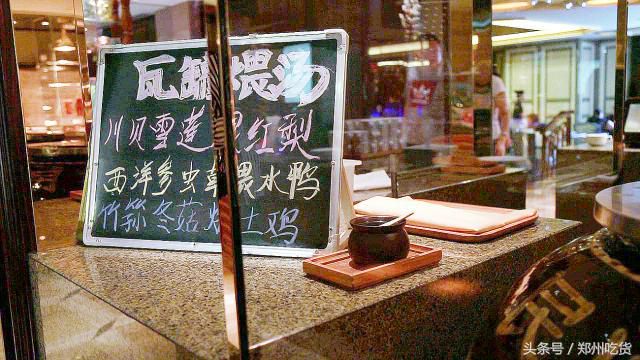 瓦罐煨汤
川贝雪莲煨红梨
西洋参虫草煨水鸭
竹荪冬菇炖土鸡
和
头条号 / 郑州吃货